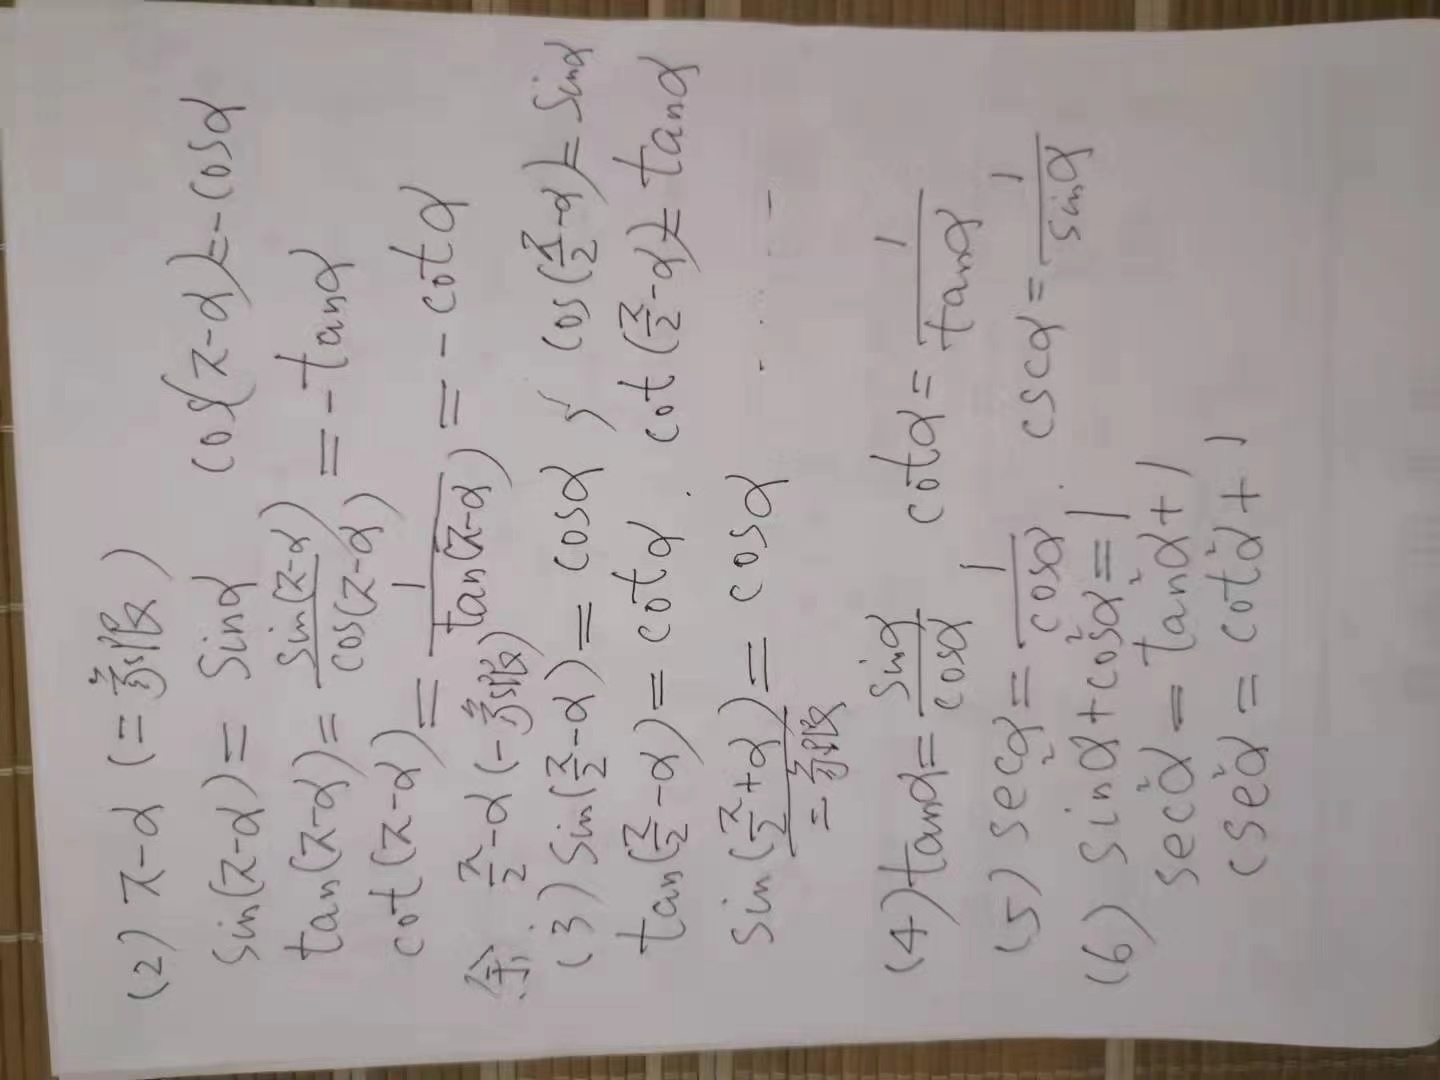 (2) π-α (二象限)
sin(π-α) = sinα cos(π-α) = -cosα
tan(π-α) = sin(π-α)/cos(π-α) = -tanα
cot(π-α) = 1/tan(π-α) = -cotα
余. π/2-α (一象限)
(3) sin(π/2-α) = cosα ; cos(π/2-α) = sinα
tan(π/2-α) = cotα. cot(π/2-α) = tanα
sin(π/2+α) = cosα ......
二象限
(4) tanα = sinα/cosα cotα = 1/tanα
(5) secα = 1/cosα. cscα = 1/sinα
(6) sin²α + cos²α = 1
sec²α = tan²α + 1
cse²α = cot²α + 1